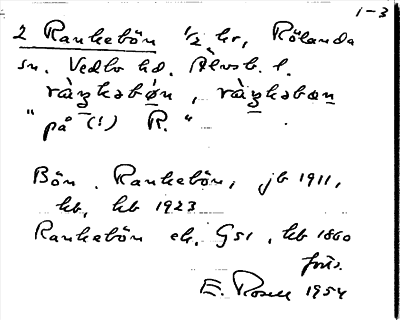 1-3
2 Rankebön 1/2 hr, Rölanda
sn. Vedbo hd. Älvsb. l.
ràŋkəbø̀n, ràŋkəbən
"på (!) R."
Bön, Rankebön, jb 1911,
hb, kb 1923
Rankebön ek. GS1, kb 1860
förs.
E. Rosell 1954